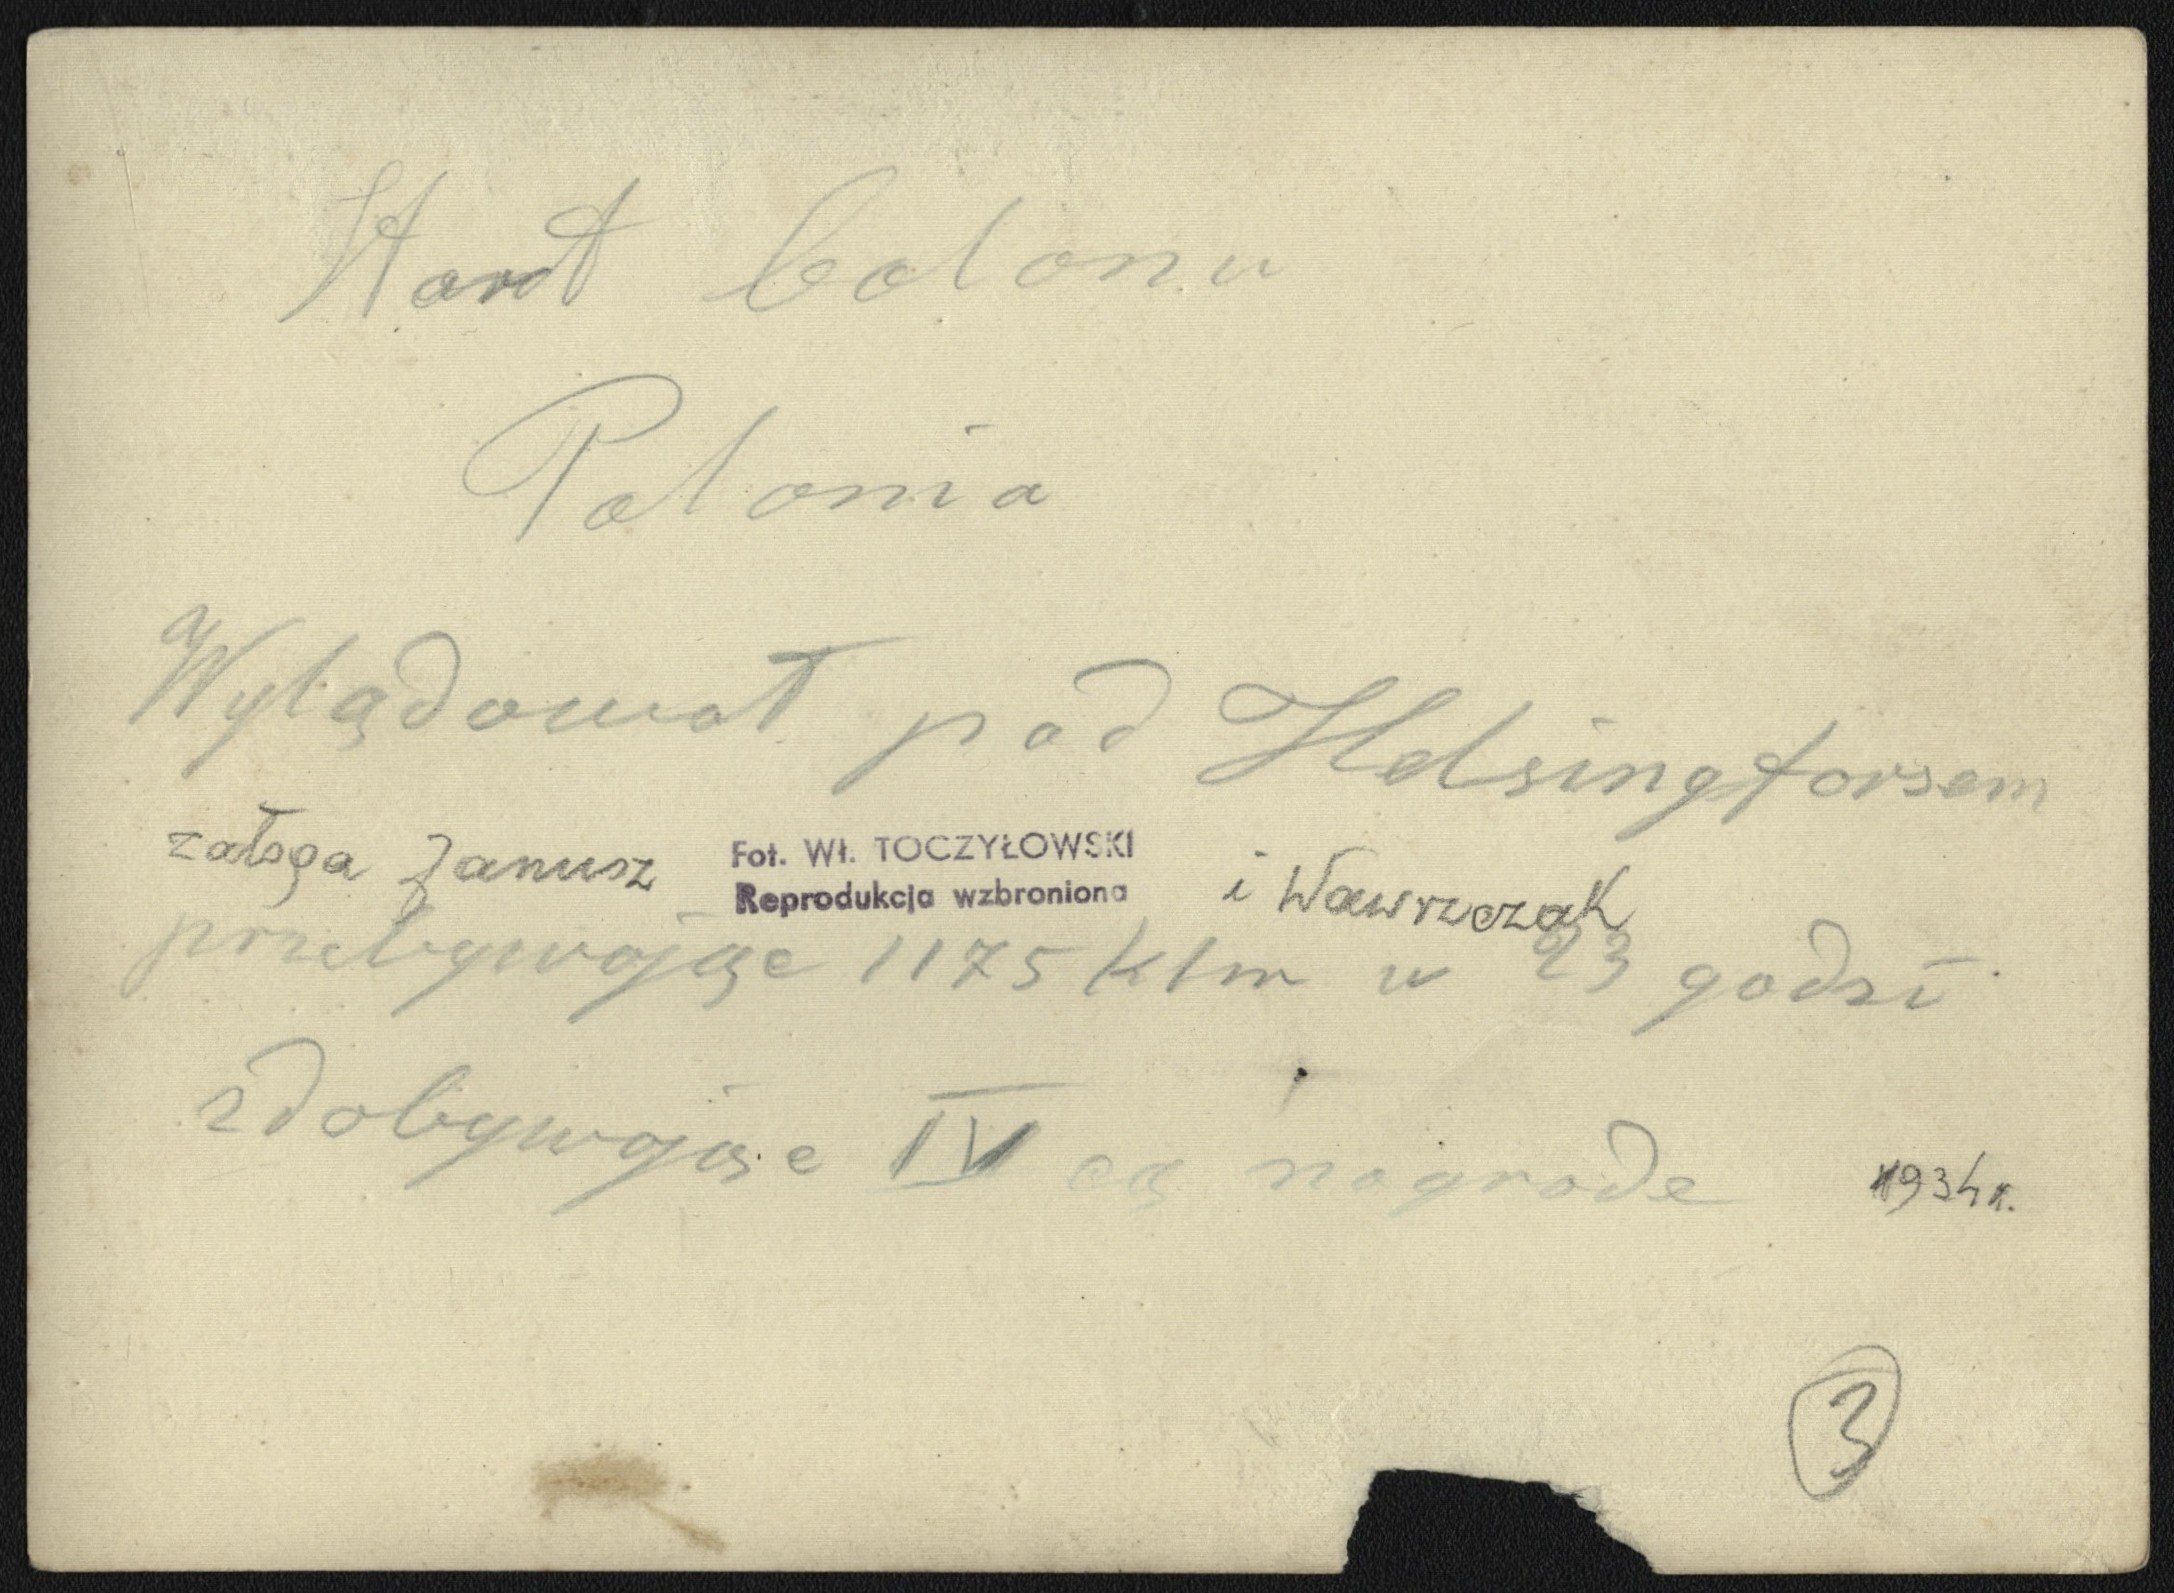 Start balonu
Polonia
Wylądował pod Helsingforsem
załoga Janusz i Wawrzczak
Fot. Wł. TOCZYŁOWSKI
Reprodukcja wzbroniona
przebywając 1175 klm w 23 godzi
zdobywając IV ą nagrodę
1934 r.
3